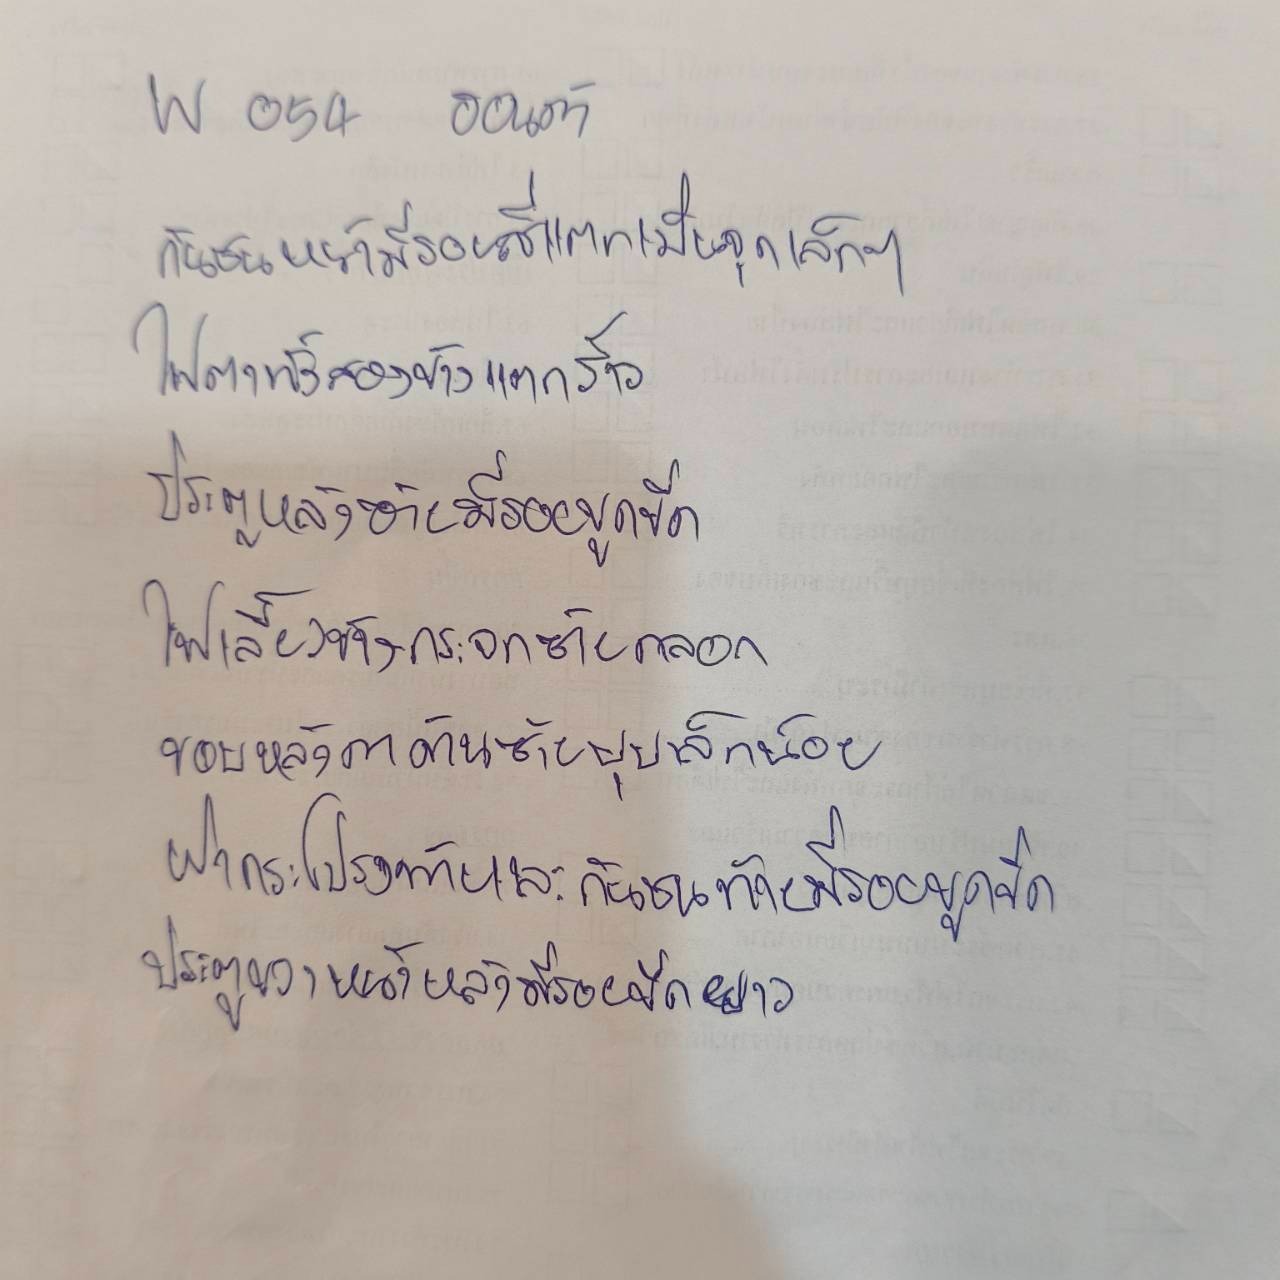 W 054 ฮอนด้า
กันชนหน้ามีรอยสีแตกเป็นจุดเล็กๆ
ไฟตาทั้งสองข้างแตกร้าว
ประตูหลังซ้ายมีรอยขูดขีด
ไฟเลี้ยวข้างกระจกซ้ายถลอก
ขอบหลังคาด้านซ้ายบุบเล็กน้อย
ฝากระโปรงท้ายและกันชนท้ายมีรอยขูดขีด
ประตูขวาหน้าหลังมีรอยขีดยาว